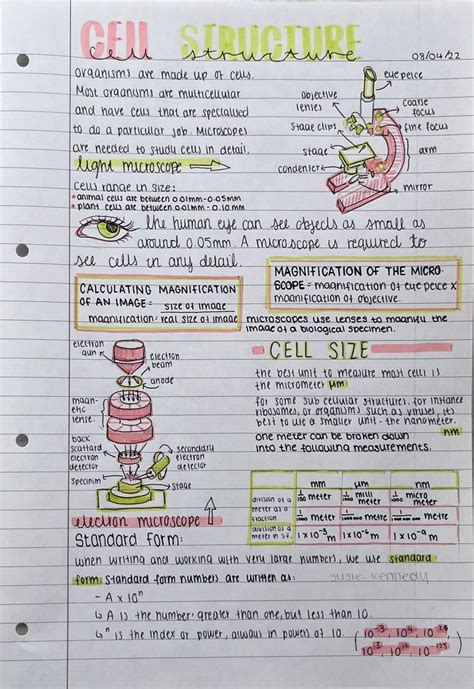 CELL STRUCTURE
cell structure
08/04/22
organisms are made up of cells.
Most organisms are multicellular
and have cells that are specialised
to do a particular job. Microscopes
are needed to study cells in detail.
light microscope
eye peice
objective
lenses
coarse
focus
stage clips
fine focus
stage
arm
condenser
mirror
cells range in size:
• animal cells are between 0.01mm-0.05mm.
• plant cells are between 0.01mm-0.10mm
the human eye can see objects as small as
around 0.05mm. A microscope is required to
see cells in any detail.
CALCULATING MAGNIFICATION
OF AN IMAGE=
magnification= size of image
real size of image
MAGNIFICATION OF THE MICRO-
SCOPE = magnification of eye peice x
magnification of objective.
microscopes use lenses to magnify the
image of a biological specimen.
electron
gun
electron
beam
anode
magn-
etic
lense.
back
scatterd
electron
detector
secondary
electron
detector
specimin
stage
electron microscope
CELL SIZE
the best unit to measure most cells is
the micrometer µm
for some sub cellular structures. for instance
ribosomes, or organisms such as viruses, its
best to use a smaller unit - the nanometer.
nm
one meter can be broken down
into the following measurements.
mm µm nm
division of a
meter as a
fraction
1/1000 meter
division of a
meter in s.f.
1x10⁻³m 1x10⁻⁶m 1x10⁻⁹m
Standard form:
when writing and working with very large numbers, we use standard
form. Standard form numbers are written as:
susie-kennedy
- A x 10ⁿ
↳ A is the number: greater than one, but less than 10.
↳ n is the index or power, always in powers of 10.